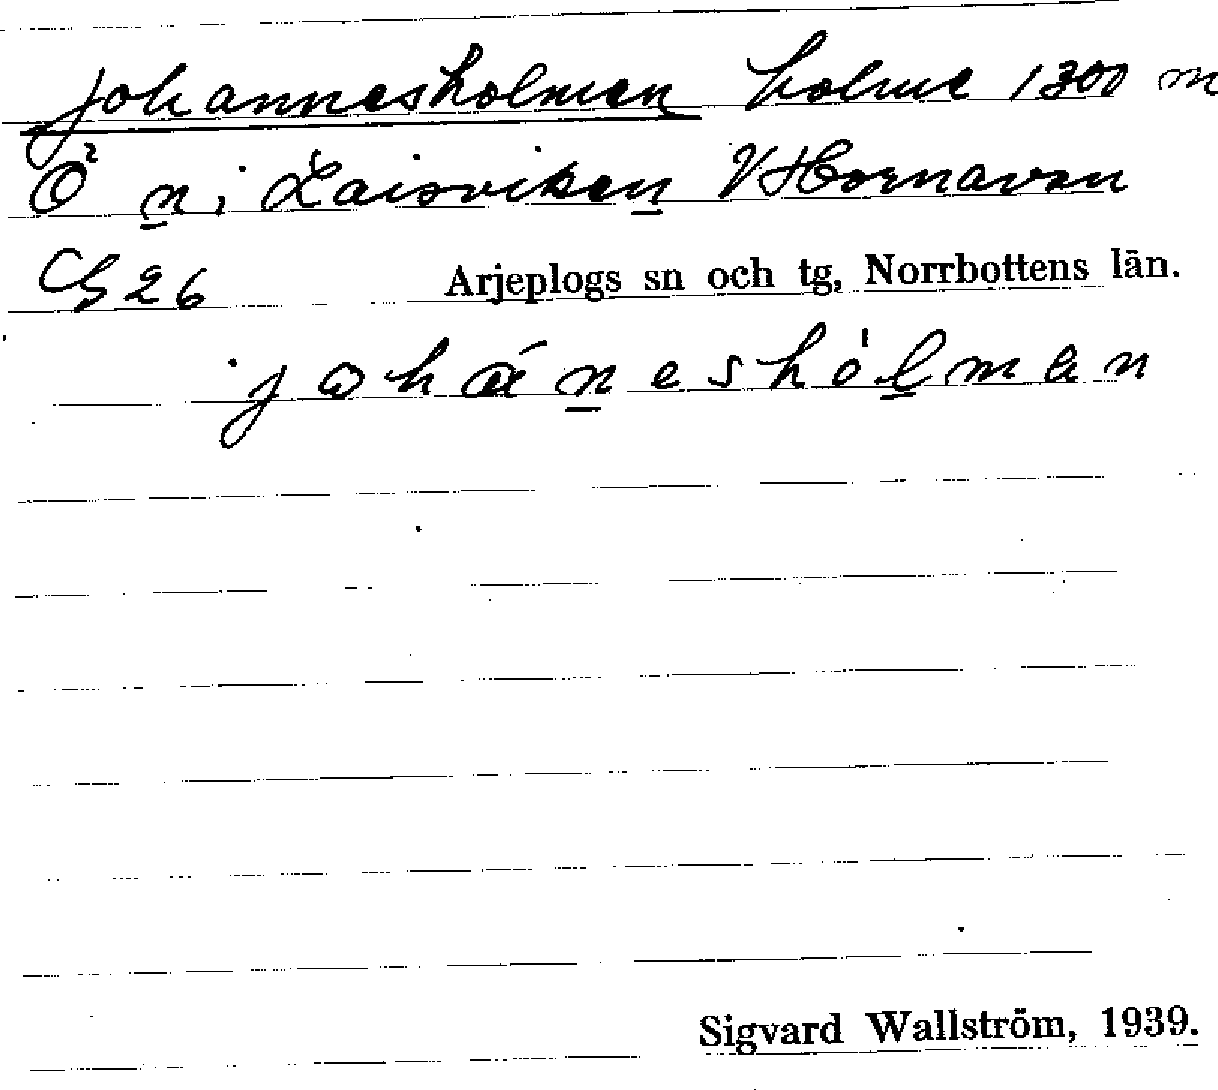 Johannesholmen holme 1300 m
Ö n i Laisviken V Hornavan
C 26 Arjeplogs sn och tg, Norrbottens län.
johánesho̍lmen
Sigvard Wallström, 1939.